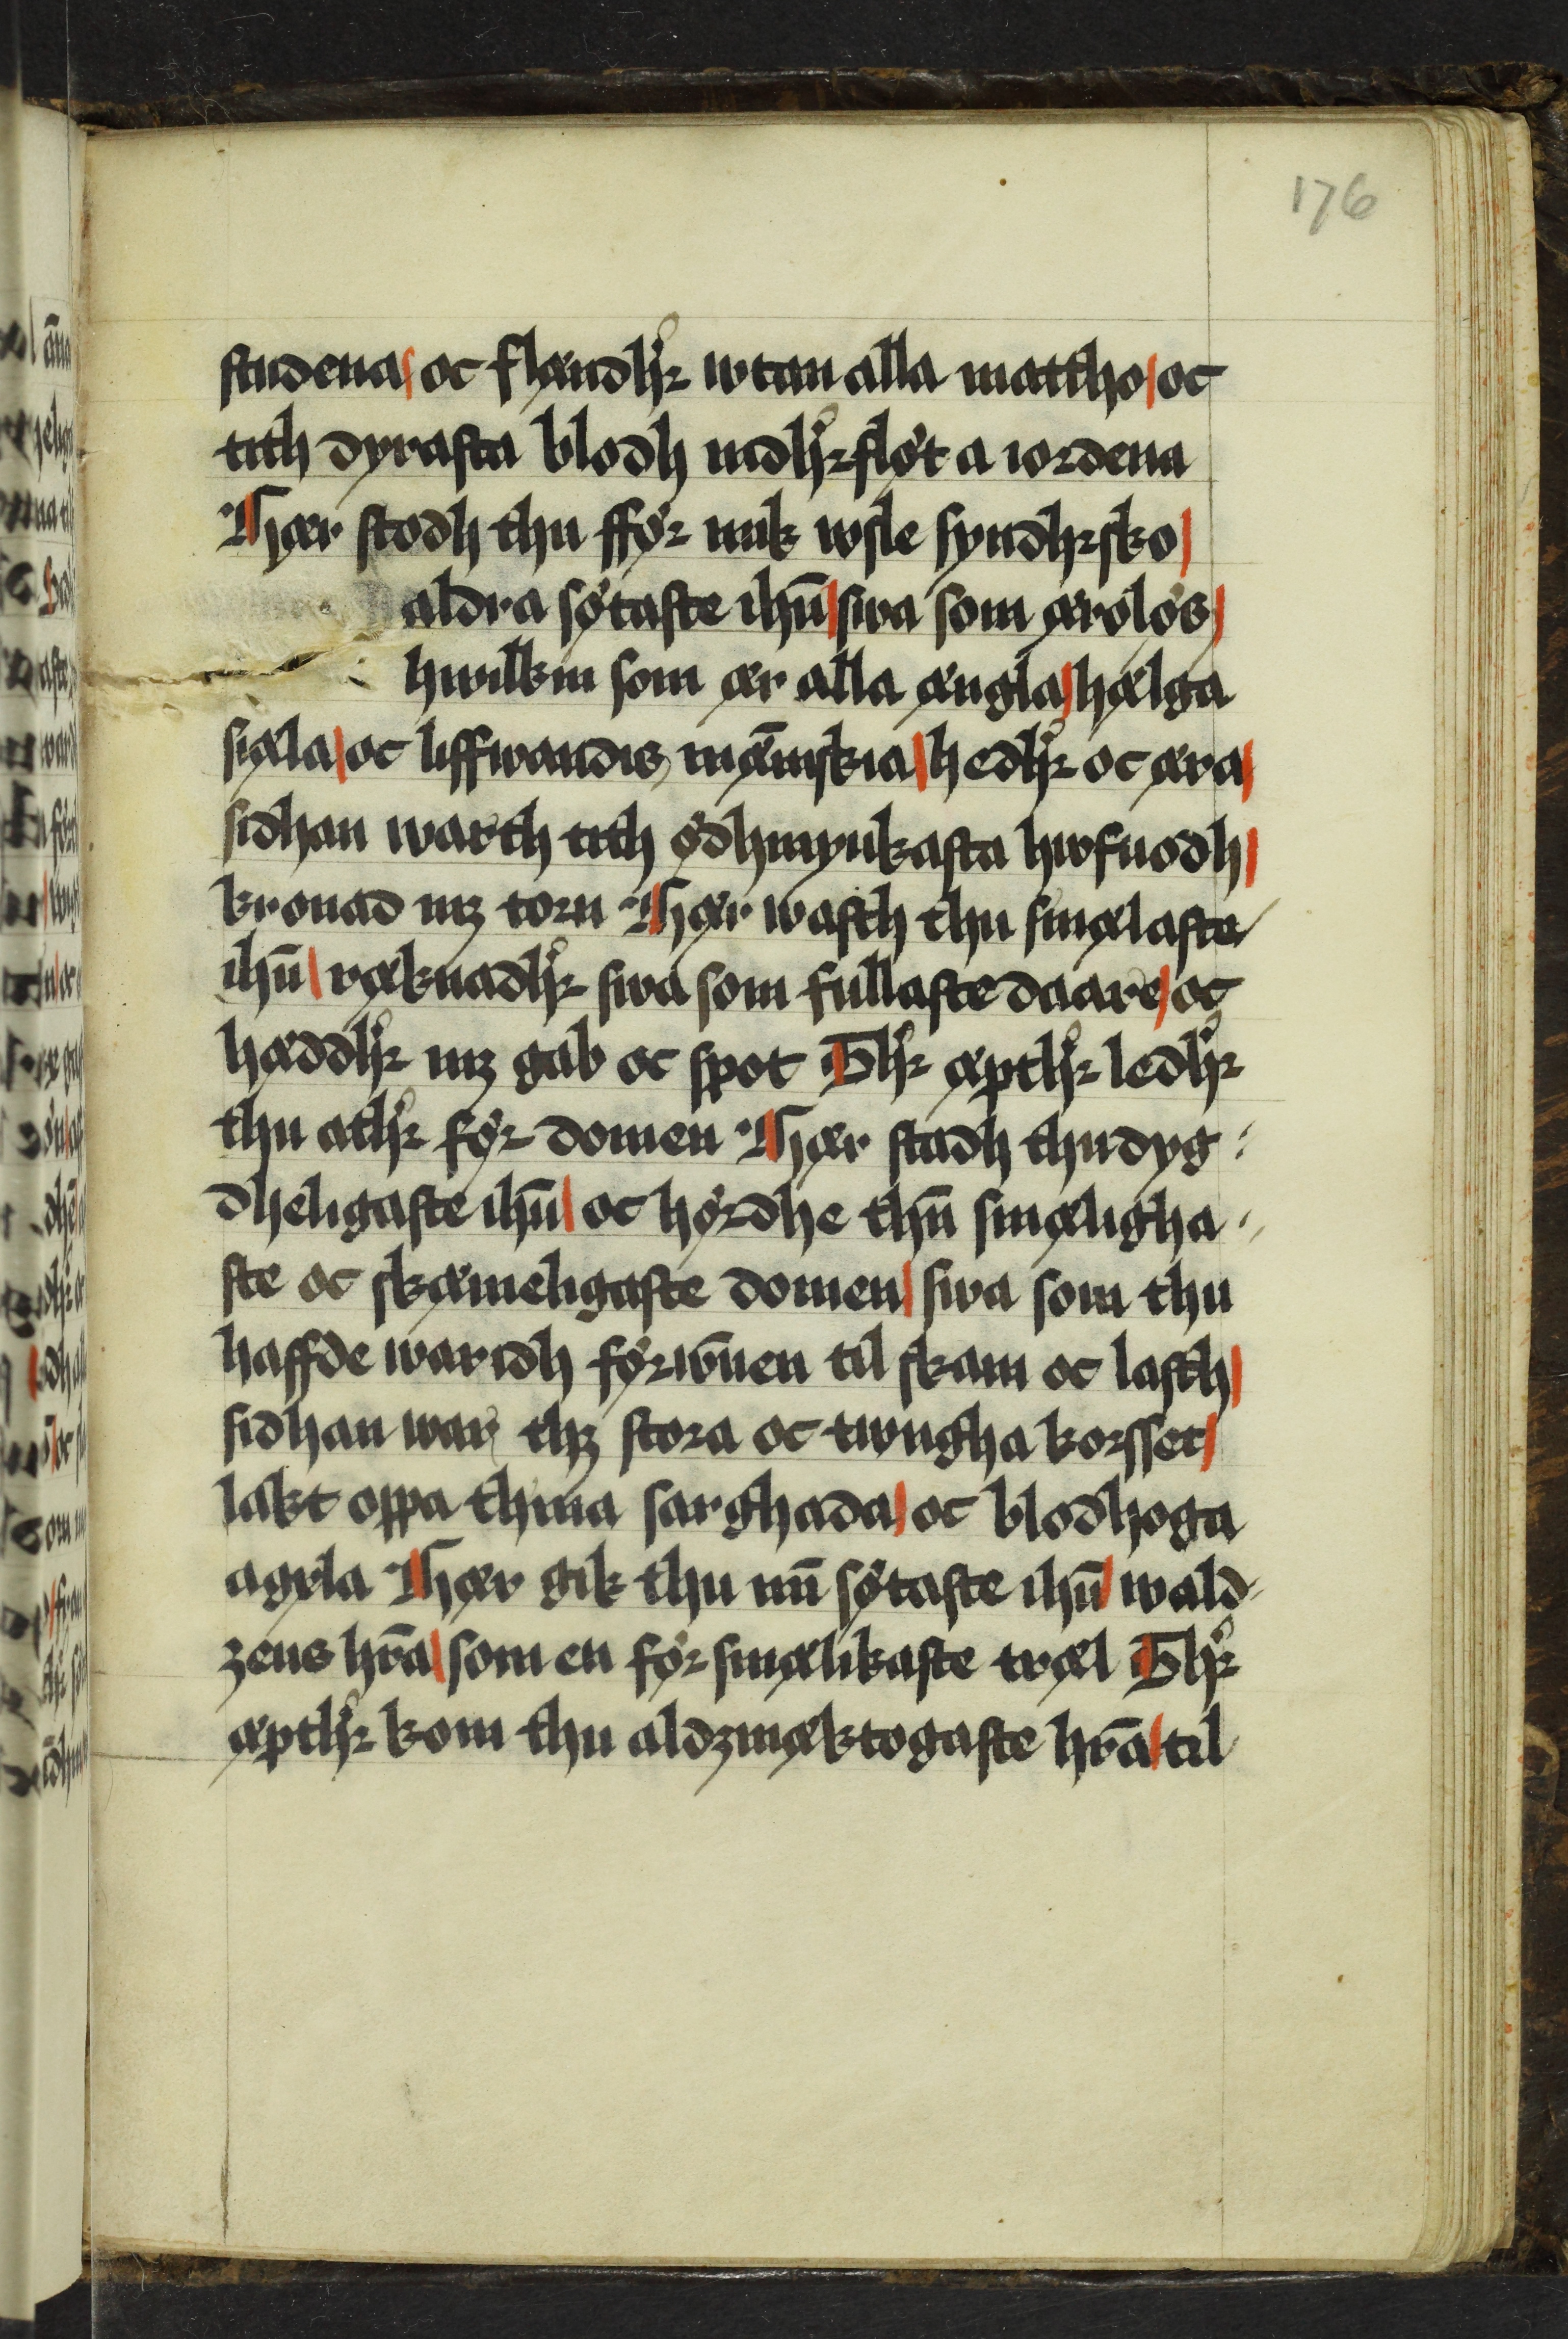 176
studena oc flændhꝛ wtan alla mattho oc
tith dyrasta blodh nidhꝛ flöt a iordena
Thær stodh thu fför mik wsle syndhꝛsko
aldra sötaste ihū swa som ærolös
hwilkin som ær alla ængla hælga
siæla oc liffwandis mæ̅niskia hedhꝛ oc æra
sidhan warth tith ödhmyukasta hwfuodh
kronad mꝫ torn Thær wasth thu smælaste
ihū ræknadhꝛ swa som fullaste daare oc
hæddhꝛ mꝫ gab oc spot Thꝛ æpthꝛ ledhꝛ
thu athꝛ för domen Thær stadh thu dyg
dheligaste ihū oc hördhe thn̄ smæligha
ste oc skæmeligaste domen swa som thu
haffde waridh förwn̄en til skam oc lasth
sidhan war thꝫ stora oc twngha korsset
lakt oppa thina sarghada oc blodhoga
agxla Thær gik thu mn̄ sötaste ihū wald
zens hr̄a som en för smælikaste træl Thꝛ
æpthꝛ kom thu aldzmæktogaste hr̄a til